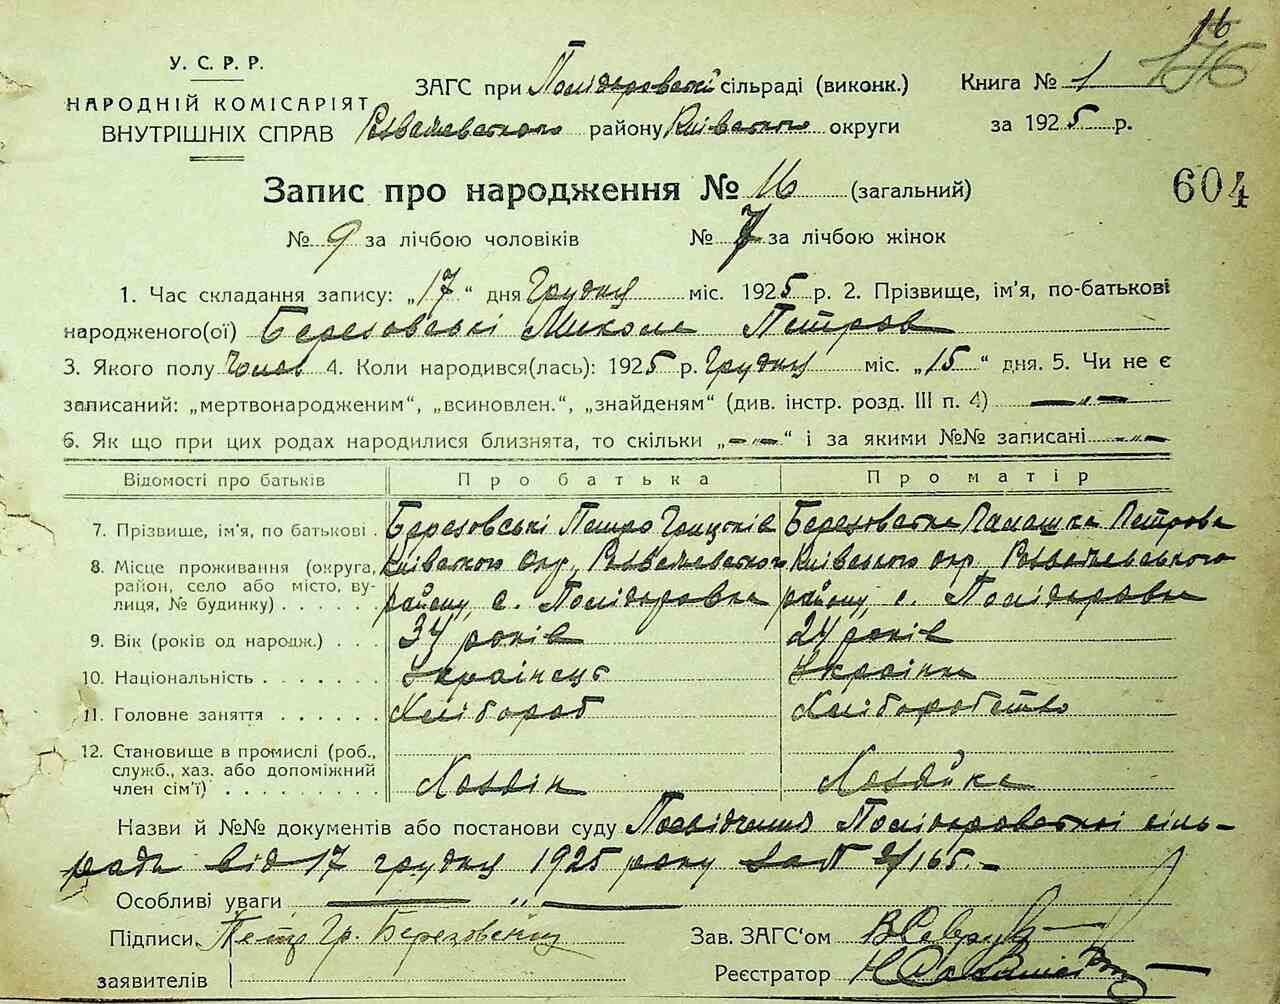 16
176
У. С. Р. Р.
НАРОДНІЙ КОМІСАРІЯТ
ВНУТРІШНІХ СПРАВ
ЗАГС при Полідаровській сільраді (виконк.) Книга № 1
Розважевського району Київського округи за 1925 р.
Запис про народження № 16 (загальний)
604
№ 9 за лічбою чоловіків № 7 за лічбою жінок
1. Час складання запису: „17“ дня Грудня міс. 1925 р. 2. Прізвище, ім'я, по-батькові
народженого(ої) Березовські Микола Петров
3. Якого полу Чолов 4. Коли народився(лась): 1925 р. Грудня міс. „15“ дня. 5. Чи не є
записаний: „мертвонародженим“, „всиновлен.“, „знайденям“ (див. інстр. розд. III п. 4) —„—
6. Як що при цих родах народилися близнята, то скільки „-„-“ і за якими №№ записані -„-
Відомості про батьків Про батька Про матір
7. Прізвище, ім'я, по батькові . Березовські Петро Грицьків Березовська Палашка Петрова
8. Місце проживання (округа, район, село або місто, вулиця, № будинку) . . . . . Київського Окр., Розважевського району, с. Полідаровка Київського окр. Розважевського району, с. Полідаровка
9. Вік (років од народж.) . . . 34 років 24 років
10. Національність . . . . . . . Українець Українка
11. Головне заняття . . . . . . Хлібороб Хліборобство
12. Становище в промислі (роб., служб., хаз. або допоміжний член сім'ї) . . . . . . . . . Хазяїн Хазяйка
Назви й №№ документів або постанови суду Посвідчення Полідаровської сіль-
ради від 17 грудня 1925 року за № 2/165.-
Особливі уваги — „ —
Підписи Петр Гр. Березовский Зав. ЗАГС'ом
заявителів Реєстратор